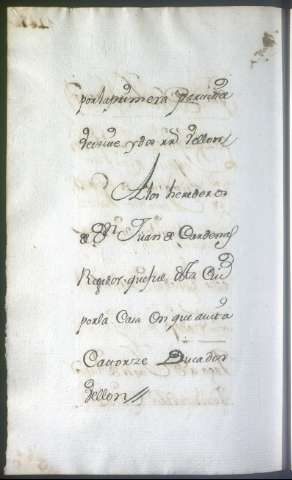 por la primera Partida
de nue y dos rrs. Vellon
A los herederos
de Dn. Juan de Cardenas
Regidor que fue desta Ciud
por la Casa en que avita
Catorze Ducados
Vellon